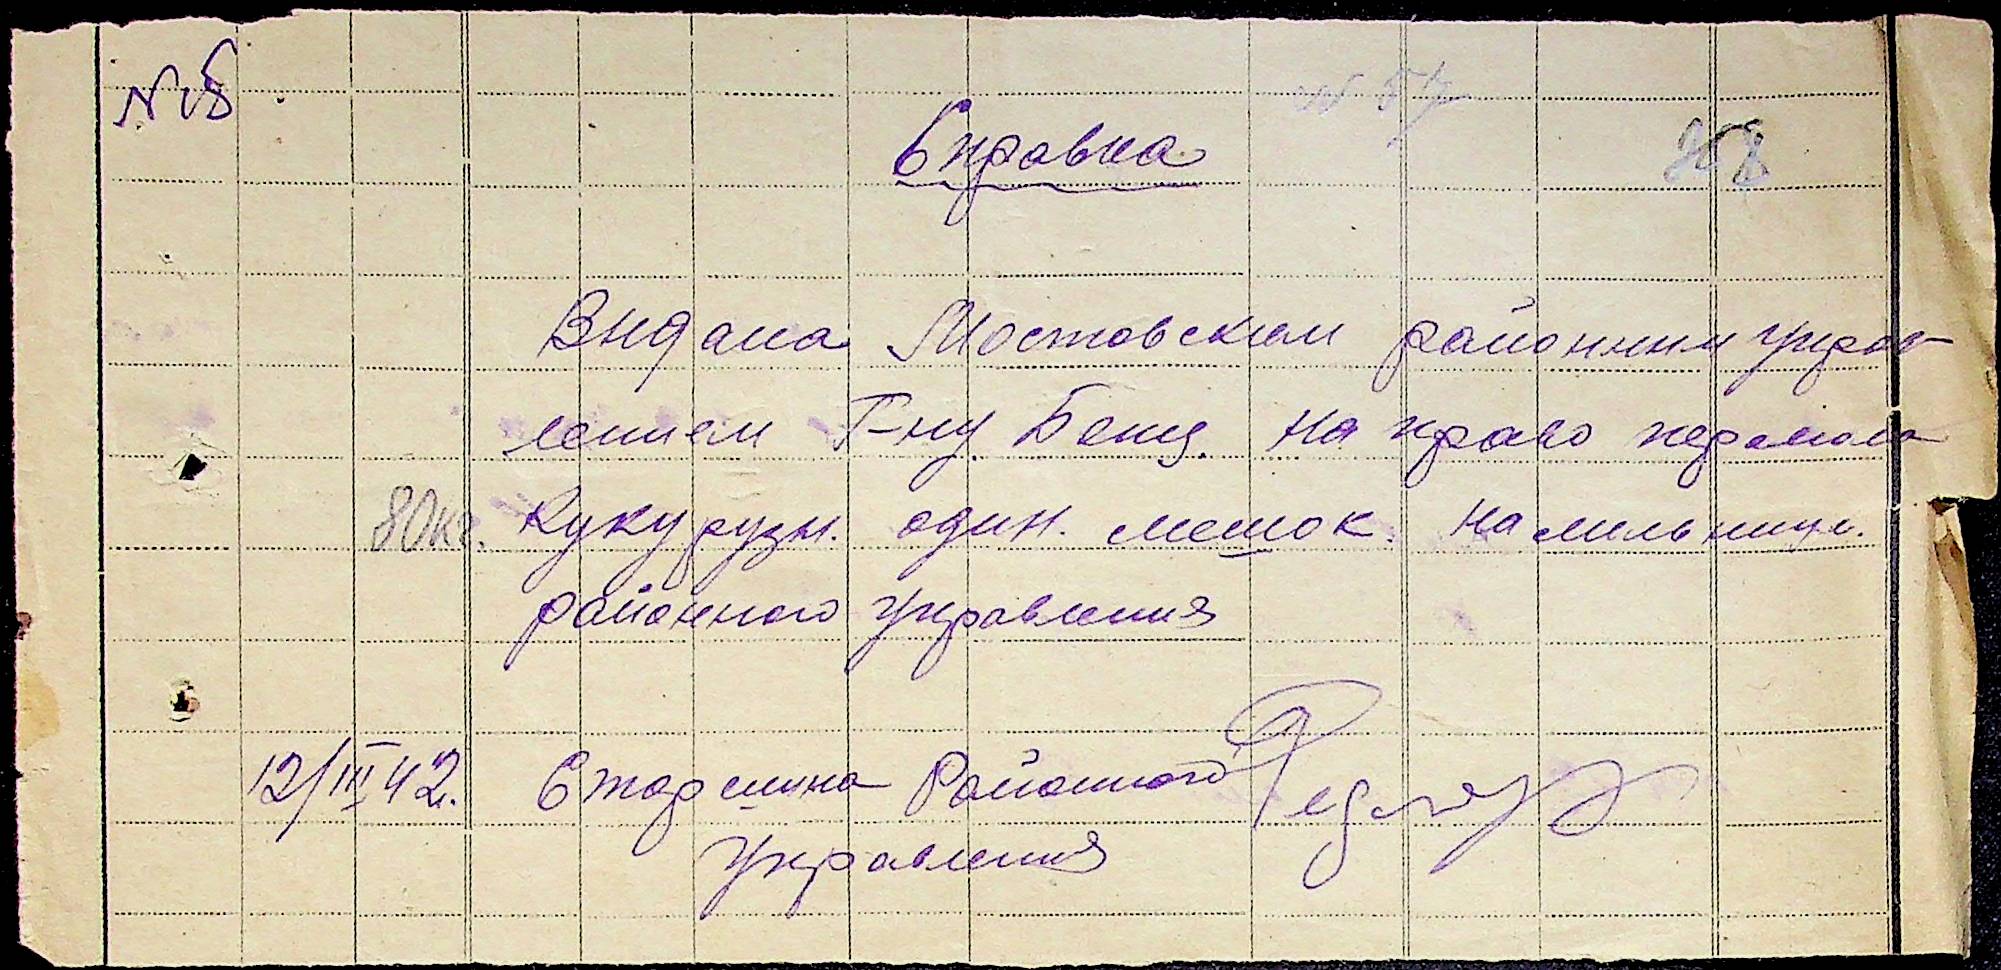 № 8
Справка
88
Видана Мостовским районним управ
лением Г-ну Бенц. на право перемола
80 кг. Кукурузи. один. мешок. на мельнице.
районного управления
12/III 42. Старшина Районного
управления